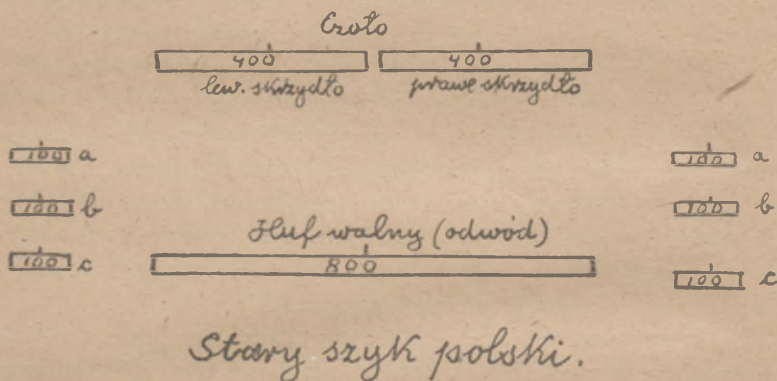 Czoło
400 400
lew. skrzydło prawe skrzydło
100 a 100 a
100 b 100 b
Huf walny (odwód)
100 c 800 100 c
Stary szyk polski.